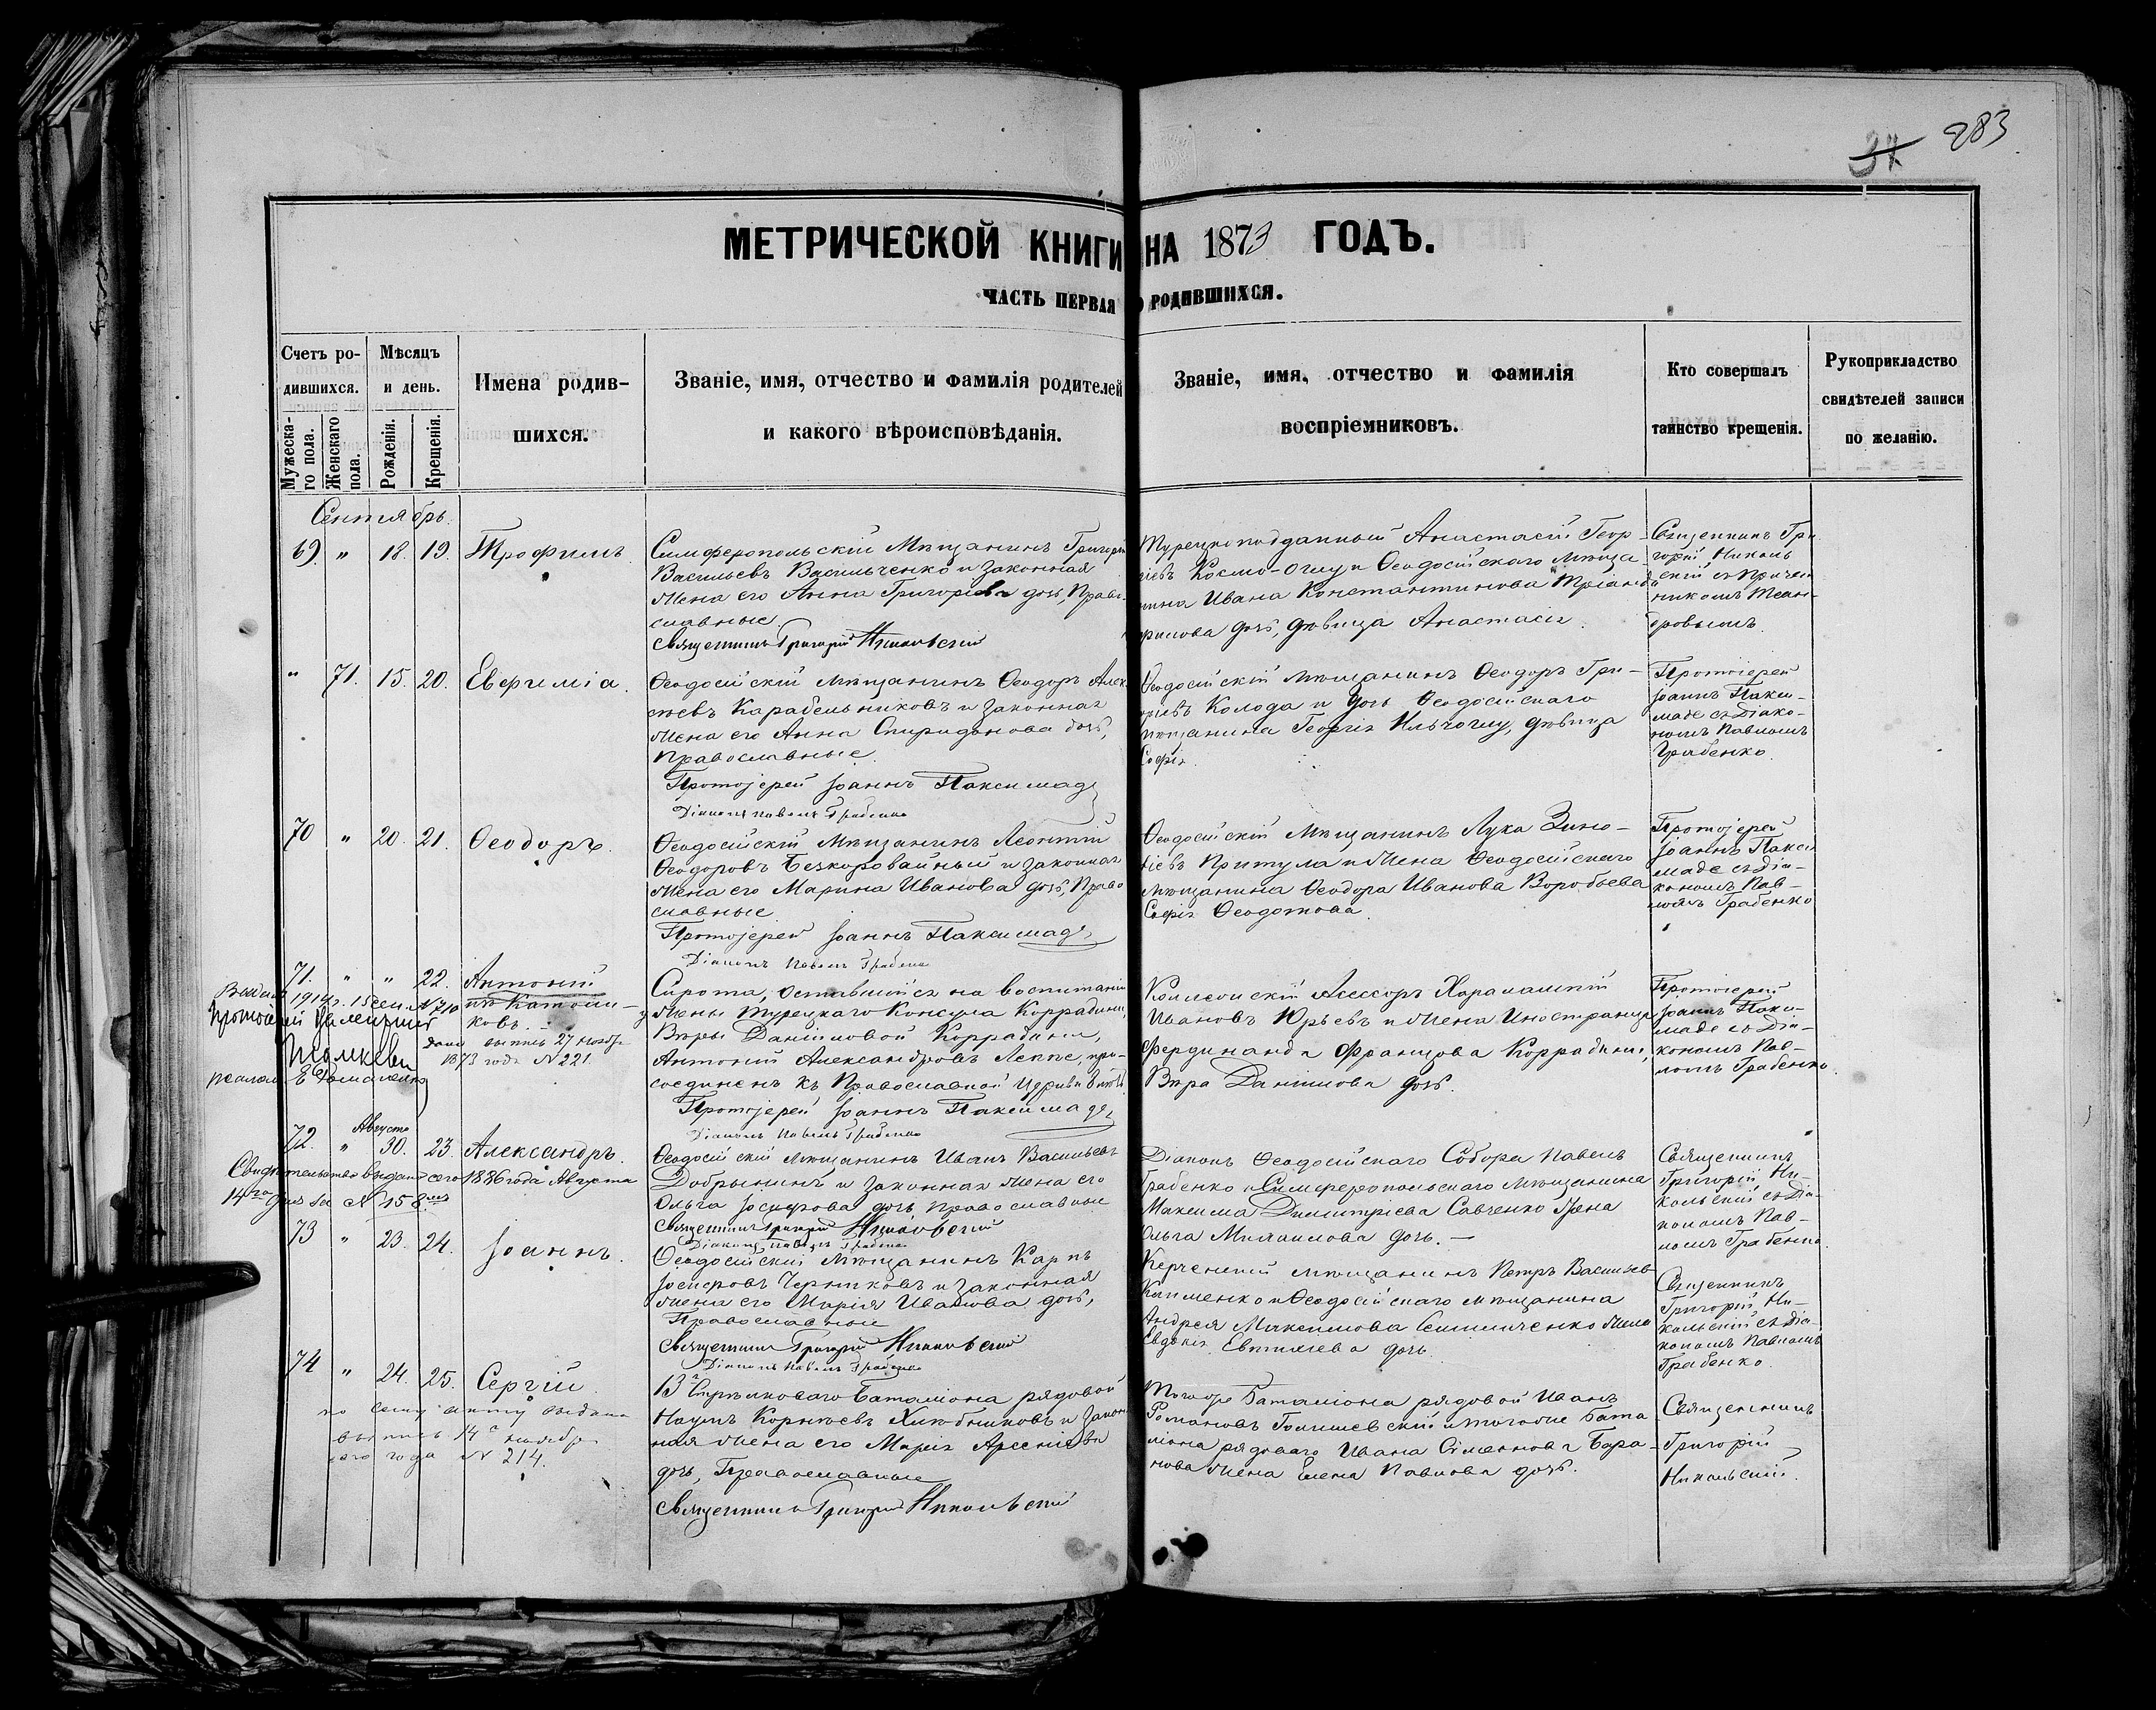 37 283
МЕТРИЧЕСКОЙ КНИГИ НА 1873 ГОДЪ.
ЧАСТЬ ПЕРВАЯ О РОДИВШИХСЯ.
Счетъ ро-
дившихся.
Мужеска-
го пола.
Женскаго
пола.
Мѣсяцъ
и день.
Рожденія.
Крещенія.
Имена родив-
шихся.
Званіе, имя, отчество и фамилія родителей
и какого вѣроисповѣданія.
Званіе, имя, отчество и фамилія
воспріемниковъ.
Кто совершалъ
таинство крещенія.
Рукоприкладство
свидѣтелей записи
по желанію.
Сентябрь.
69. " 18. 19. Трофимъ
Симферопольскій Мѣщанинъ Григорій
Васильевъ Васильченко и законная
жена его Анна Григорьева дочь, Право-
славные.
Священникъ Григорій Никольскій
Турецкоподданный Анастасій Геор-
гіевъ Космо-Оглу и Ѳеодосійскаго Мѣща-
нина Ивана Константинова
дочь, дѣвица Анастасія.
Священникъ Гри-
горій Николь-
скій съ Причет-
никомъ
" 71. 15. 20. Евфимія.
Ѳеодосійскій Мѣщанинъ Ѳеодоръ Алек-
сѣевъ Карабельниковъ и законная
жена его Анна Спиридонова дочь,
Православные.
Протоіерей Іоаннъ Паксимаде
Діаконъ Павелъ Грабенко
Ѳеодосійскій мѣщанинъ Ѳеодоръ Гри-
горьевъ Колода и дочь Ѳеодосійскаго
мѣщанина Георгія дѣвица
Софія.
Протоіерей
Іоаннъ Пакси-
маде съ Діако-
номъ Павломъ
Грабенко.
70 " 20. 21. Ѳеодоръ.
Ѳеодосійскій Мѣщанинъ Леонтій
Ѳеодоровъ Безкоровайный и законная
жена его Марина Иванова дочь, Право-
славные
Протоіерей Іоаннъ Паксимаде
Діаконъ Павелъ Грабенко
Ѳеодосійскій Мѣщанинъ Лука Зино-
віевъ Притула и жена Ѳеодосійскаго
мѣщанина Ѳеодора Иванова Воробьева
Софія Ѳеодотова.
Протоіерей
Іоаннъ Пакси-
маде съ Діа-
кономъ Пав-
ломъ Грабенко
71. " " 22. Антоній
изъ Католи-
ковъ.
1914 г. 15 сен. № 710
Протоіерей
дана выпись 27 Ноября
1873 года № 221
Сирота, оставшійся на воспитаніи
у жены турецкаго Консула Коррадини,
Вѣры Даниловой Коррадини,
Антоній Александровъ при-
соединенъ къ Православной Церкви
Протоіерей Іоаннъ Паксимаде
Діаконъ Павелъ Грабенко
Коллежскій Ассесоръ Харалампій
Ивановъ Юрьевъ и жена Иностранца
Фердинанда Францова Коррадини,
Вѣра Данилова дочь.
Протоіерей
Іоаннъ Пакси-
маде съ Діа-
кономъ Пав-
ломъ Грабенко.
Августа
72. " 30. 23. Александръ.
Свидѣтельство выдано сего 1886 года Августа
14го дня за № 158мъ
Ѳеодосійскій мѣщанинъ Иванъ Васильевъ
Добрынинъ и законная жена его
Ольга Іосифова дочь православные
Священникъ Григорій Никольскій
Діаконъ Павелъ Грабенко
Діаконъ Ѳеодосійскаго Собора Павелъ
Грабенко и Симферопольскаго Мѣщанина
Максима Димитріева Савченко жена
Ольга Михаилова дочь. —
Священникъ
Григорій Ни-
кольскій съ Діа-
кономъ Пав-
ломъ Грабенко.
73 " 23. 24. Іоаннъ.
Ѳеодосійскій Мѣщанинъ Карпъ
Іосифовъ Черниковъ и законная
жена его Марія Иванова дочь,
Православные
Священникъ Григорій Никольскій
Діаконъ Павелъ Грабенко
Керченскій мѣщанинъ Петръ Васильев
Клименко и Ѳеодосійскаго мѣщанина
Андрея Максимова жена
Евдокія дочь.
Священникъ
Григорій Ни-
кольскій съ Діа-
кономъ Павломъ
Грабенко.
74 " 24. 25. Сергій.
по сему акту выдана
выпись 14 ноября
сего года № 214.
13го Стрѣлковаго Баталіона рядовой
Наумъ Корнѣевъ Хлѣбниковъ и закон-
ная жена его Марія Арсеніева
дочь, Православные
Священникъ Григорій Никольскій
Тогоже Баталіона рядовой Иванъ
Романовъ и тогоже Бата-
ліона рядоваго Ивана Симеонова Бара-
нова жена Елена Павлова дочь.
Священникъ
Григорій
Никольскій.